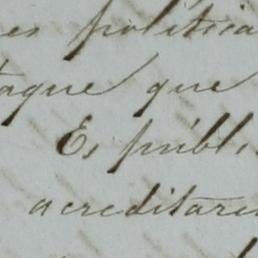 es politica
taque que
Es públi
acreditare